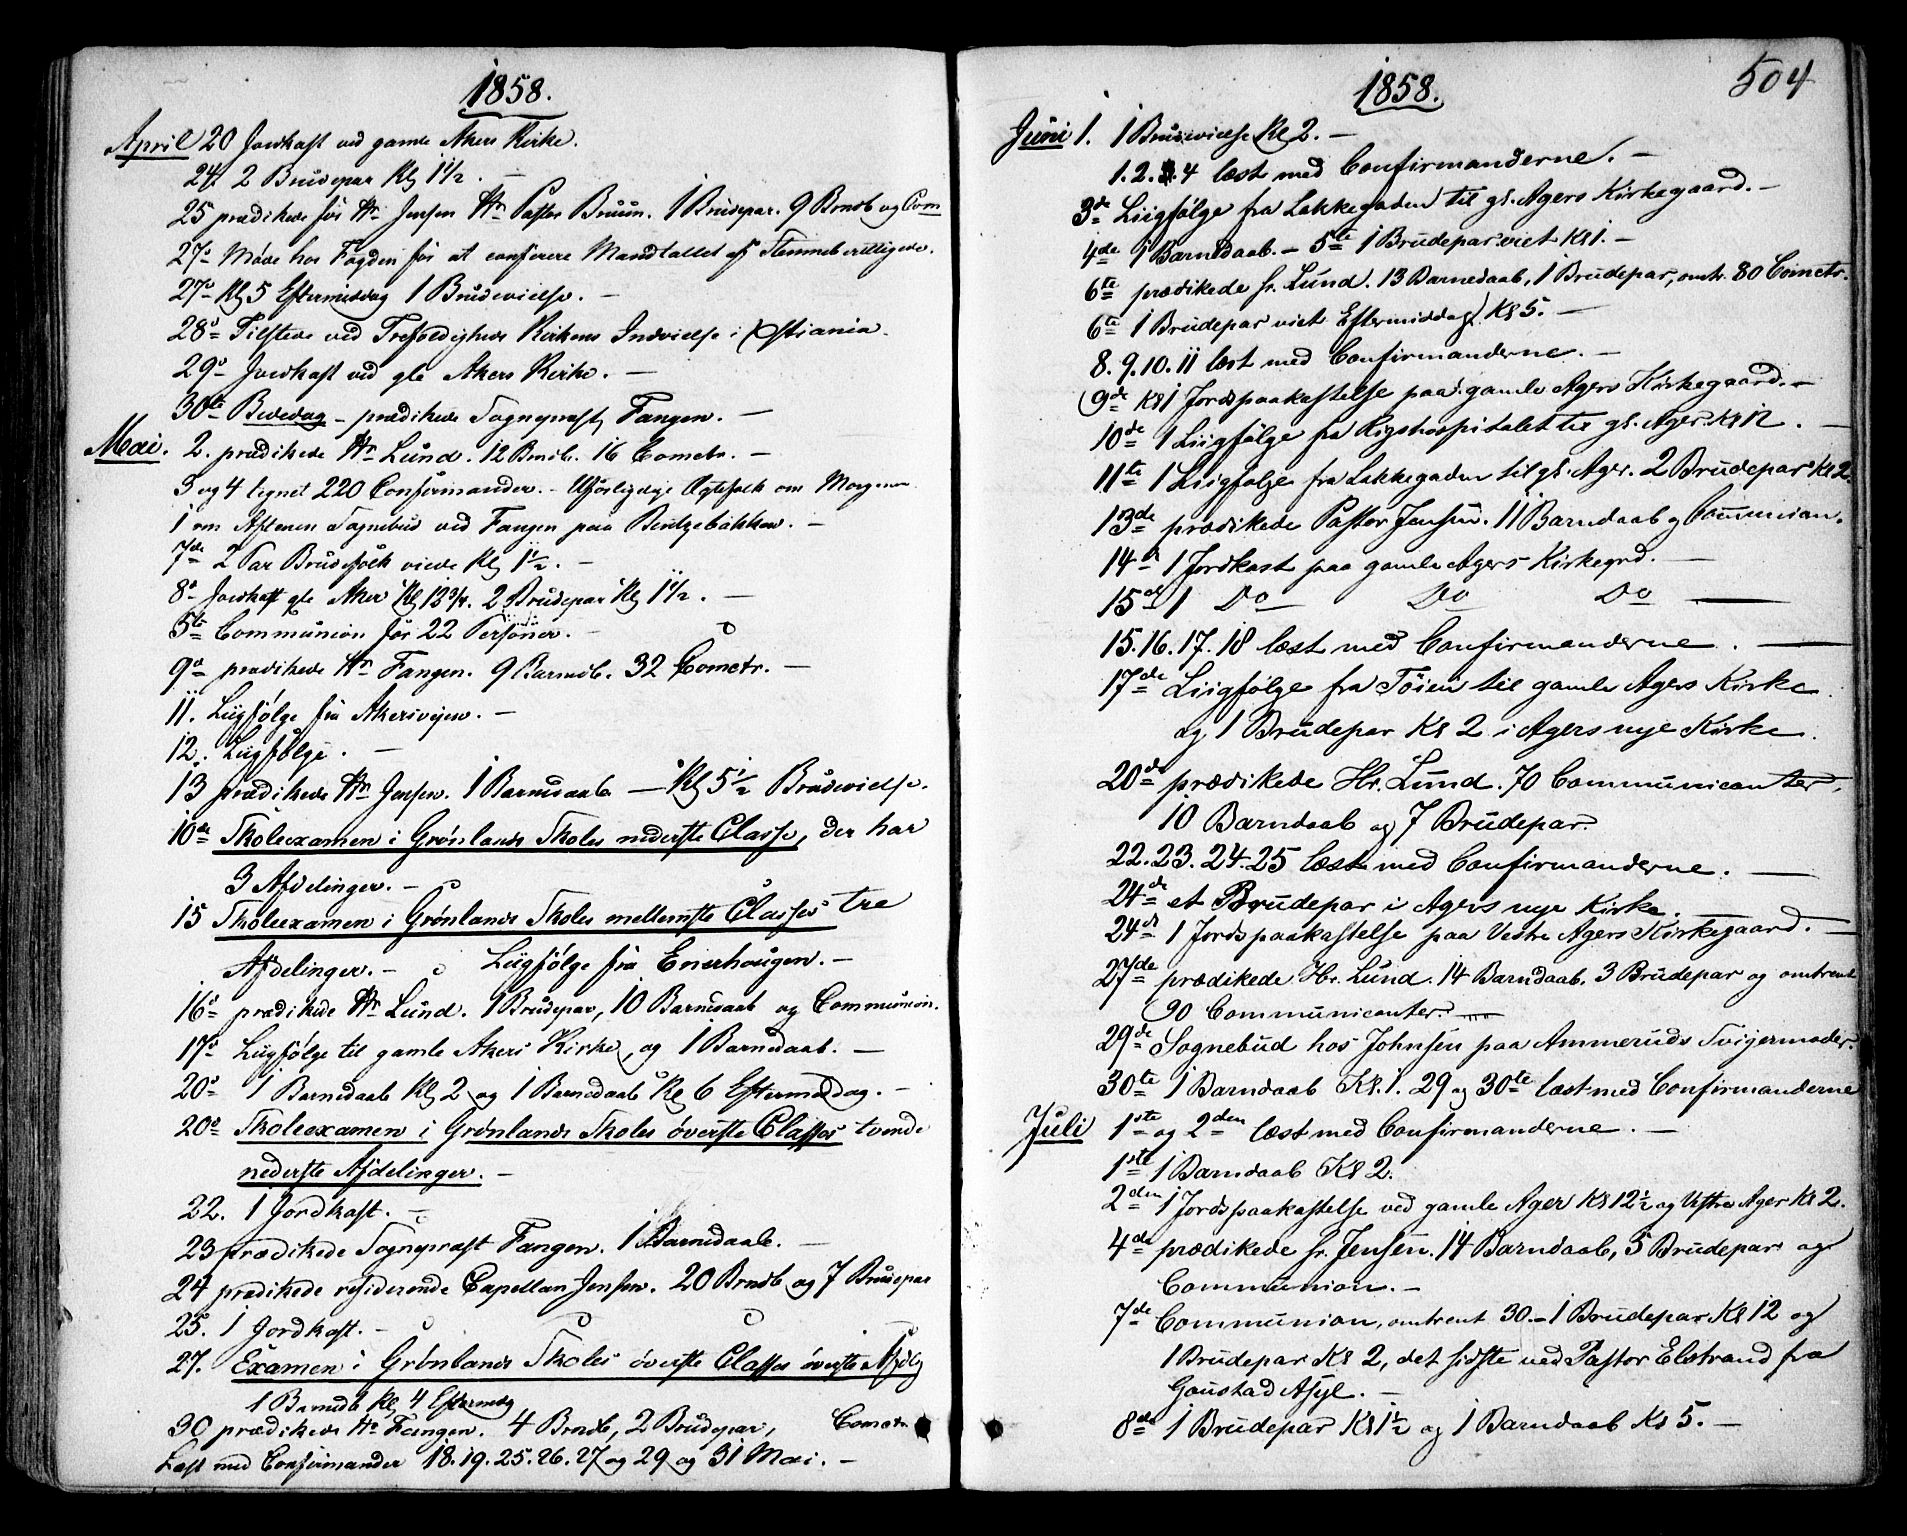 1858.
April 20 Jordkast ved gamle Akers Kirke.
24. 2 Brudepar Kl 1 1/2. –
25 prædikede før Hr Jensen Hr Pastor Bruun. 1 Brudepar. 9 Brndb og Com
27de Møde hos Fogden før at conferere Mandtallet af Stemmeberettigede.
27de Kl 5 Eftermiddag 1 Brudevielse. –
28de Tilstede ved Trefoldigheds Kirkens Indvielse i Xstiania.
29de Jordkast ved gle Akers Kirke. –
30te Bededag – prædikede Sognepræst Fangen. –
Mai. 2. prædikede Hr Lund. 12 Brndb. 16 Comctr. –
3 og 4 tegnet 220 Confirmander. – Uforligelige Ægtefolk om Morgenen
1 om Aftenen Sognebud ved Fangen paa
7de 2 Par Brudefolk viede Kl 1 1/2. –
8de Jordkast gle Aker Kl 12 3/4. 2 Brudepar Kl 1 1/2. –
5te Communion for 22 Personer. –
9de prædikede Hr Fangen. 9 Barndb. 32 Comctr. –
11. Liigfølge fra Akersvejen. –
12. Liigfølge. –
13 prædikede Hr Jensen. 1 Barndaab – Kl 5 1/2 Brudevielse.
10de Skoleexamen i Grønlands Skoles nederste Classe, der har
3 Afdelinger. –
15 Skoleexamen i Grønlands Skoles mellemste Classes tre
Afdelinger. – Liigfølge fra Enerhougen. –
16de prædikede Hr Lund. 1 Brudepar, 10 Barndaab og Communion.
17de Liigfølge til gamle Akers Kirke, og 1 Barndaab. –
20de 1 Barndaab Kl 2 og 1 Barndaab Kl 6 Eftermiddag. –
20de Skoleexamen i Grønlands Skoles øverste Classes tvende
nederste Afdelinger. –
22. 1 Jordkast. –
23 prædikede Sognepræst Fangen. 1 Barndaab. –
24 prædikede residerende Capellan Jensen. 20 Brndb og 7 Brudepar
25. 1 Jordkast. –
27. Examen i Grønlands Skoles øverste Classes øverste Afdlg
1 Brndb Kl 4 Eftermdg
30 prædikede Hr Fangen. 4 Brndb, 2 Brudepar, Comctr
Læst med Confirmander 18. 19. 25. 26. 27 og 29 og 31 Mai. –
1858. 504
Juni 1. 1 Brudevielse Kl 2. –
1. 2. 3. 4 læst med Confirmanderne. –
3de Liigfølge fra Lakkegaden til gl. Agers Kirkegaard. –
4de 1 Barndaab. – 5te 1 Brudepar viet Kl 1. –
6te prædikede hr. Lund. 13 Barnedaab, 1 Brudepar, omtr. 80 Comctr.
6te 1 Brudepar viet Eftermiddag Kl 5. –
8. 9. 10. 11 læst med Confirmanderne. –
9de Kl 1 Jordspaakastelse paa gamle Agers Kirkegaard. –
10de 1 Liigfølge fra Rigshospitalet til gl. Ager Kl 12. –
11te 1 Liigfølge fra Lakkegaden til gl. Ager. 2 Brudepar Kl 2.
13de prædikede Pastor Jensen. 11 Barndaab og Communion.
14de 1 Jordkast paa gamle Agers Kirkegrd. –
15de 1 Do Do Do –
15. 16. 17. 18 læst med Confirmanderne. –
17de Liigfølge fra Tøien til gamle Agers Kirke
og 1 Brudepar Kl 2 i Agers nye Kirke.
20de prædikede Hr. Lund. 70 Communicanter,
10 Barndaab og 7 Brudepar.
22. 23. 24. 25 læst med Confirmanderne. –
24de et Brudepar i Agers nye Kirke. –
24de 1 Jordspaakastelse paa Vestre Agers Kirkegaard. –
27de prædikede Hr. Lund. 14 Barndaab. 3 Brudepar og omtrent
90 Communicanter. –
29de Sognebud hos Johnsen paa Ammeruds Svigermoder.
30te 1 Barndaab Kl. 1. 29 og 30te læst med Confirmanderne
Juli 1ste og 2den læst med Confirmanderne. –
1ste 1 Barndaab Kl 2.
2den 1 Jordspaakastelse ved gamle Ager Kl 12 1/2 og Vestre Ager Kl 2.
4de prædikede hr. Jensen. 14 Barndaab, 5 Brudepar og
Communion. –
7de Communion, omtrent 30. – 1 Brudepar Kl 12 og
1 Brudepar Kl 2, det sidste ved Pastor Elstrand fra
Goustad Asyl. –
8de 1 Brudepar Kl 1 1/2 og 1 Barndaab Kl 5. –